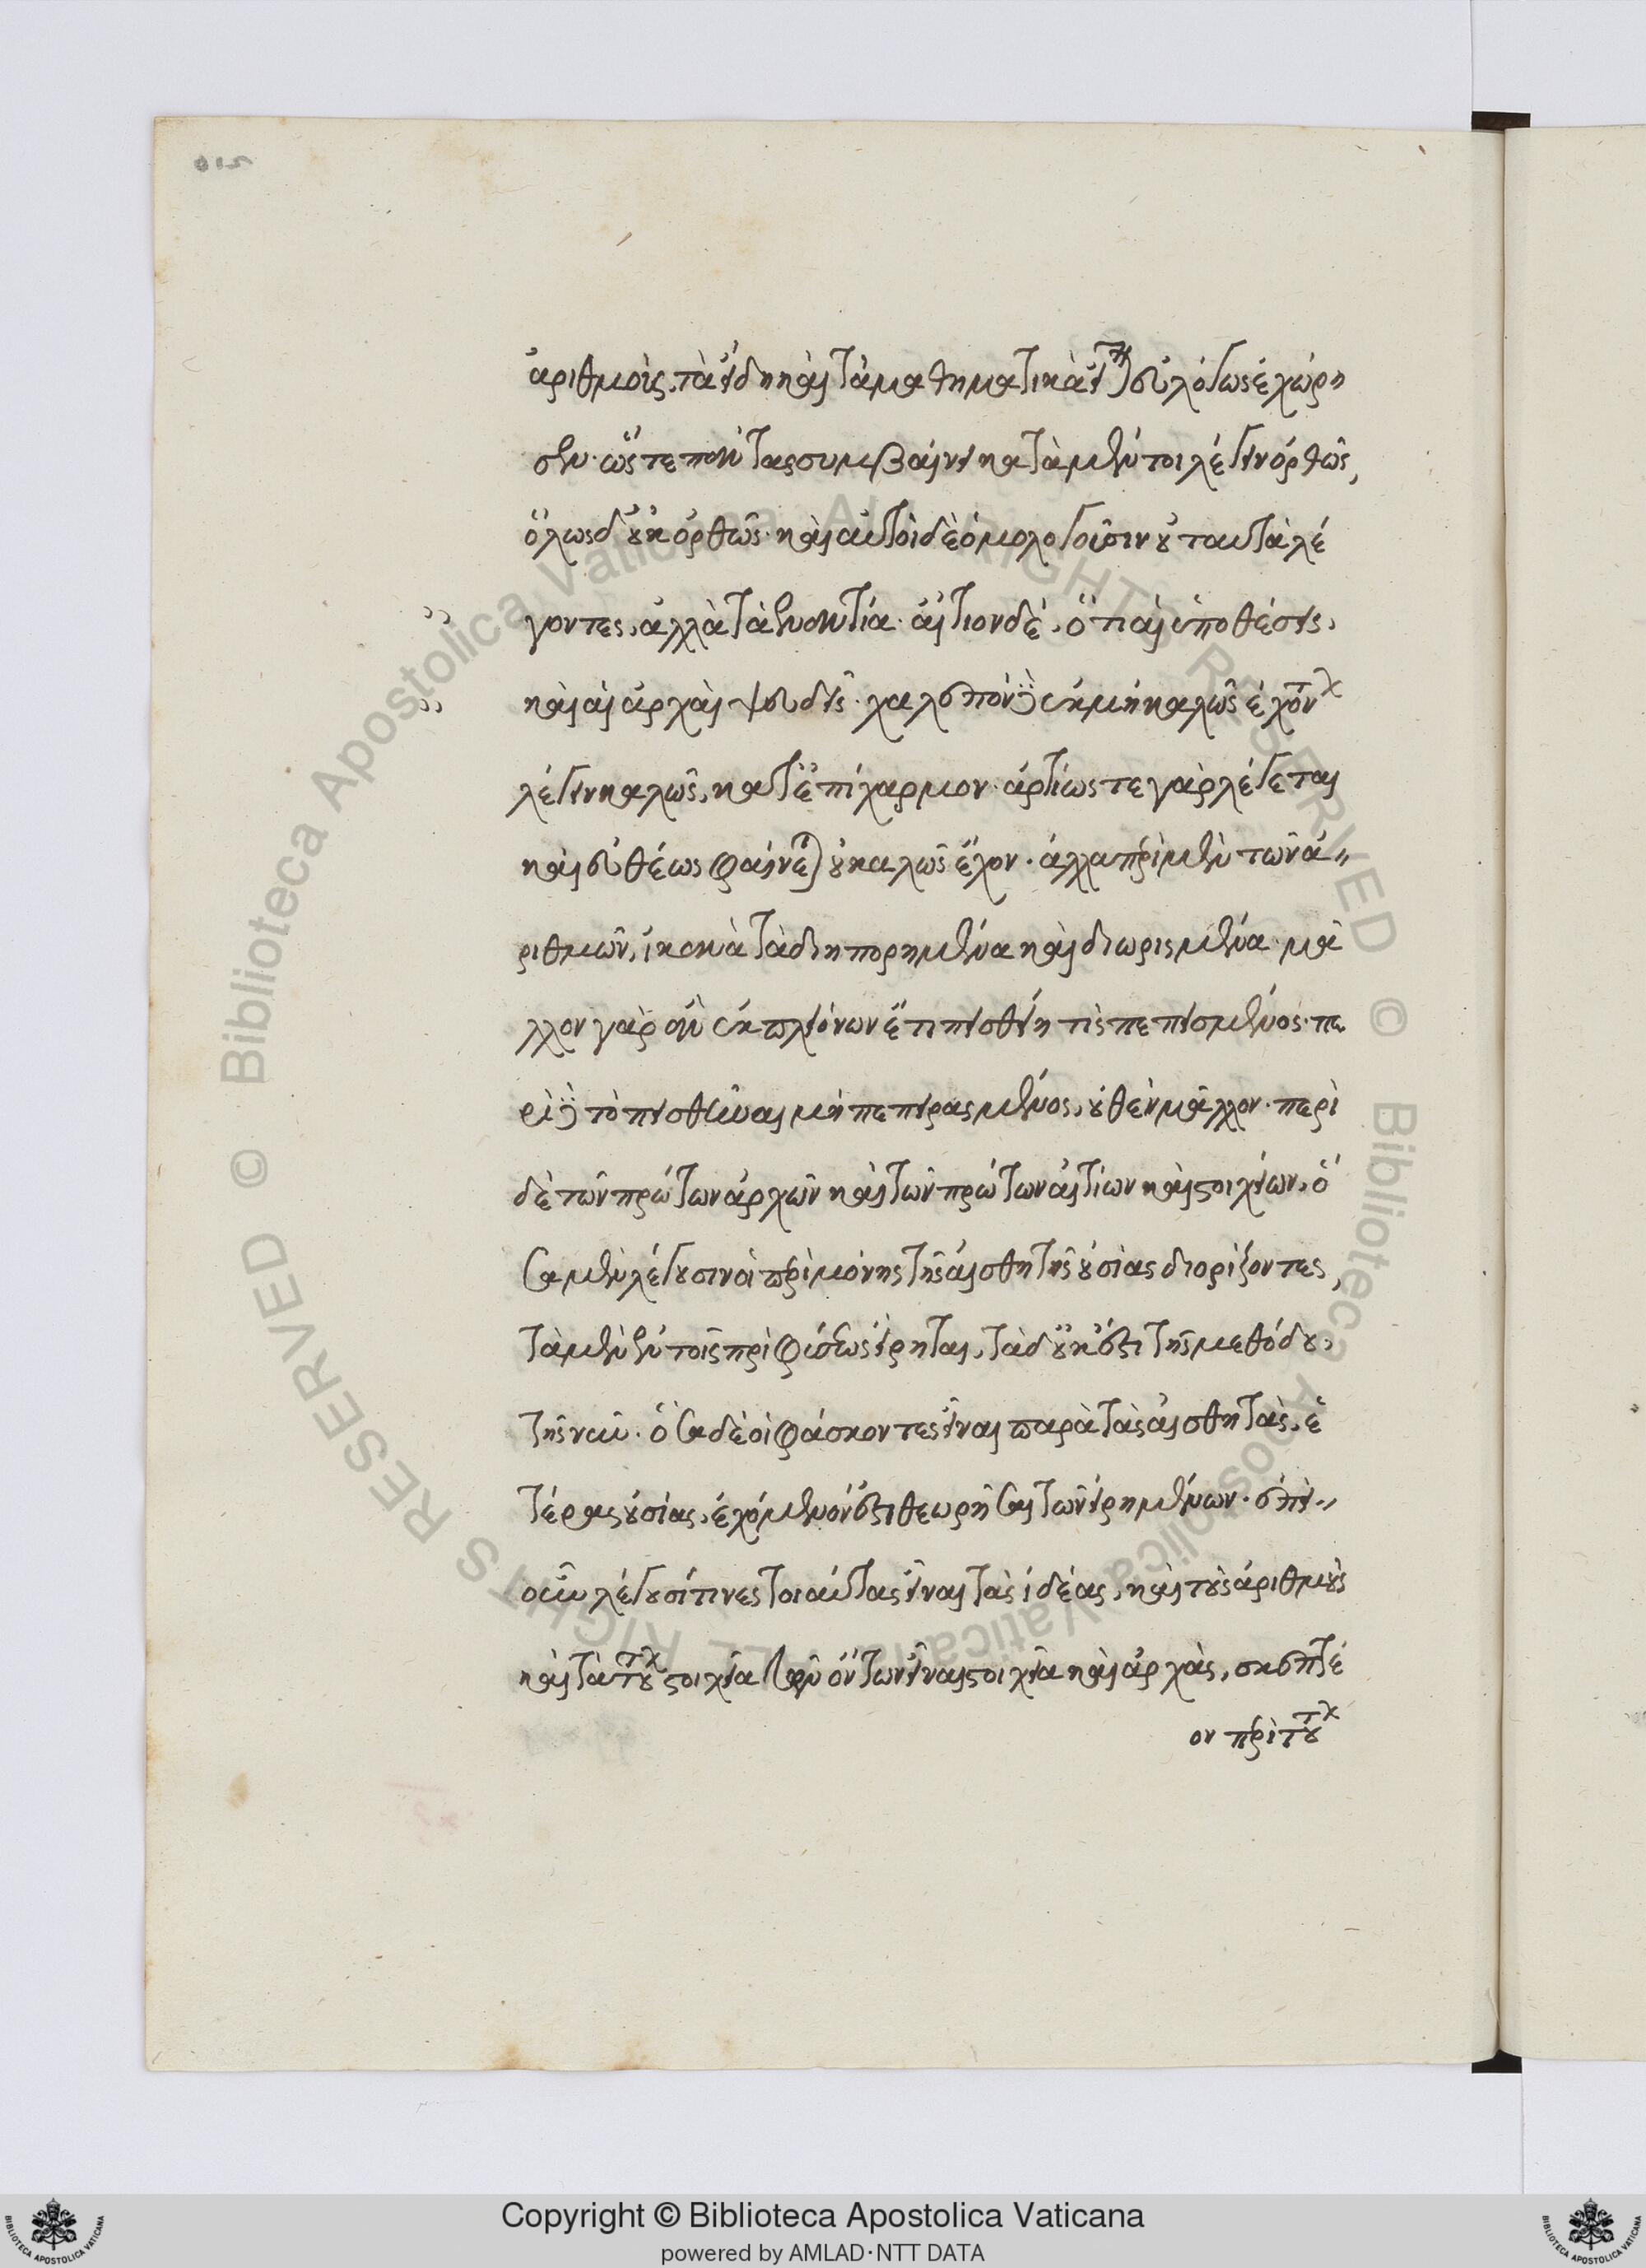 ἀριθμοὺς, τὰ εἴδη καὶ τὰ μαθηματικὰ εἶναι εὐλόγως ἐχώρι
σεν· ὥστε πάντας συμβαίνει κατὰ μέν τοι λέγειν ὀρθῶς,
ὅλως δ' οὐκ ὀρθῶς· καὶ αὐτοὶ δὲ ὁμολογοῦσιν οὐ ταυτὰ λέ
γοντες, ἀλλὰ τὰ ἐναντία· αἴτιον δὲ, ὅτι αἱ ὑποθέσεις,
καὶ αἱ ἀρχαὶ ψευδεῖς· χαλεπὸν δὲ ἐκ μὴ καλῶς ἐχόντων
λέγειν καλῶς, κατ' ἐπίχαρμον· ἀρτίως τε γὰρ λέγεται
καὶ εὐθέως φαίνεται οὐ καλῶς ἔχον· ἀλλὰ περὶ μὲν τῶν ἀ
ριθμῶν, ἱκανὰ τὰ διηπορημένα καὶ διωρισμένα· μᾶ
λλον γὰρ ἂν ἐκ πλειόνων ἔτι πεισθείη τὶς πεπεισμένος· πε
ρὶ δὲ τὸ πεισθῆναι μὴ πεπειρασμένος, οὐθὲν μᾶλλον· περὶ
δὲ τῶν πρώτων ἀρχῶν καὶ τῶν πρώτων αἰτίων καὶ στοιχείων, ὅ
σα μὲν λέγουσιν οἱ περὶ μόνης τῆς αἰσθητῆς οὐσίας διορίζοντες,
τὰ μὲν ἐν τοῖς περὶ φύσεως εἴρηται, τὰ δ' οὐκ ἔστι τῆς μεθόδου,
τῆς νῦν· ὅσα δὲ οἱ φάσκοντες εἶναι παρὰ τὰς αἰσθητὰς, ἑ
τέρας οὐσίας, ἐχόμενόν ἐστι θεωρῆσαι τῶν εἰρημένων· ἐπεὶ
οὖν λέγουσί τινες τοιαύτας εἶναι τὰς ἰδέας, καὶ τοὺς ἀριθμοὺς
καὶ τὰ τούτων στοιχεῖα τῶν ὄντων εἶναι στοιχεῖα καὶ ἀρχὰς, σκεπτέ
ον περὶ τούτων
Copyright © Biblioteca Apostolica Vaticana
powered by AMLAD·NTT DATA